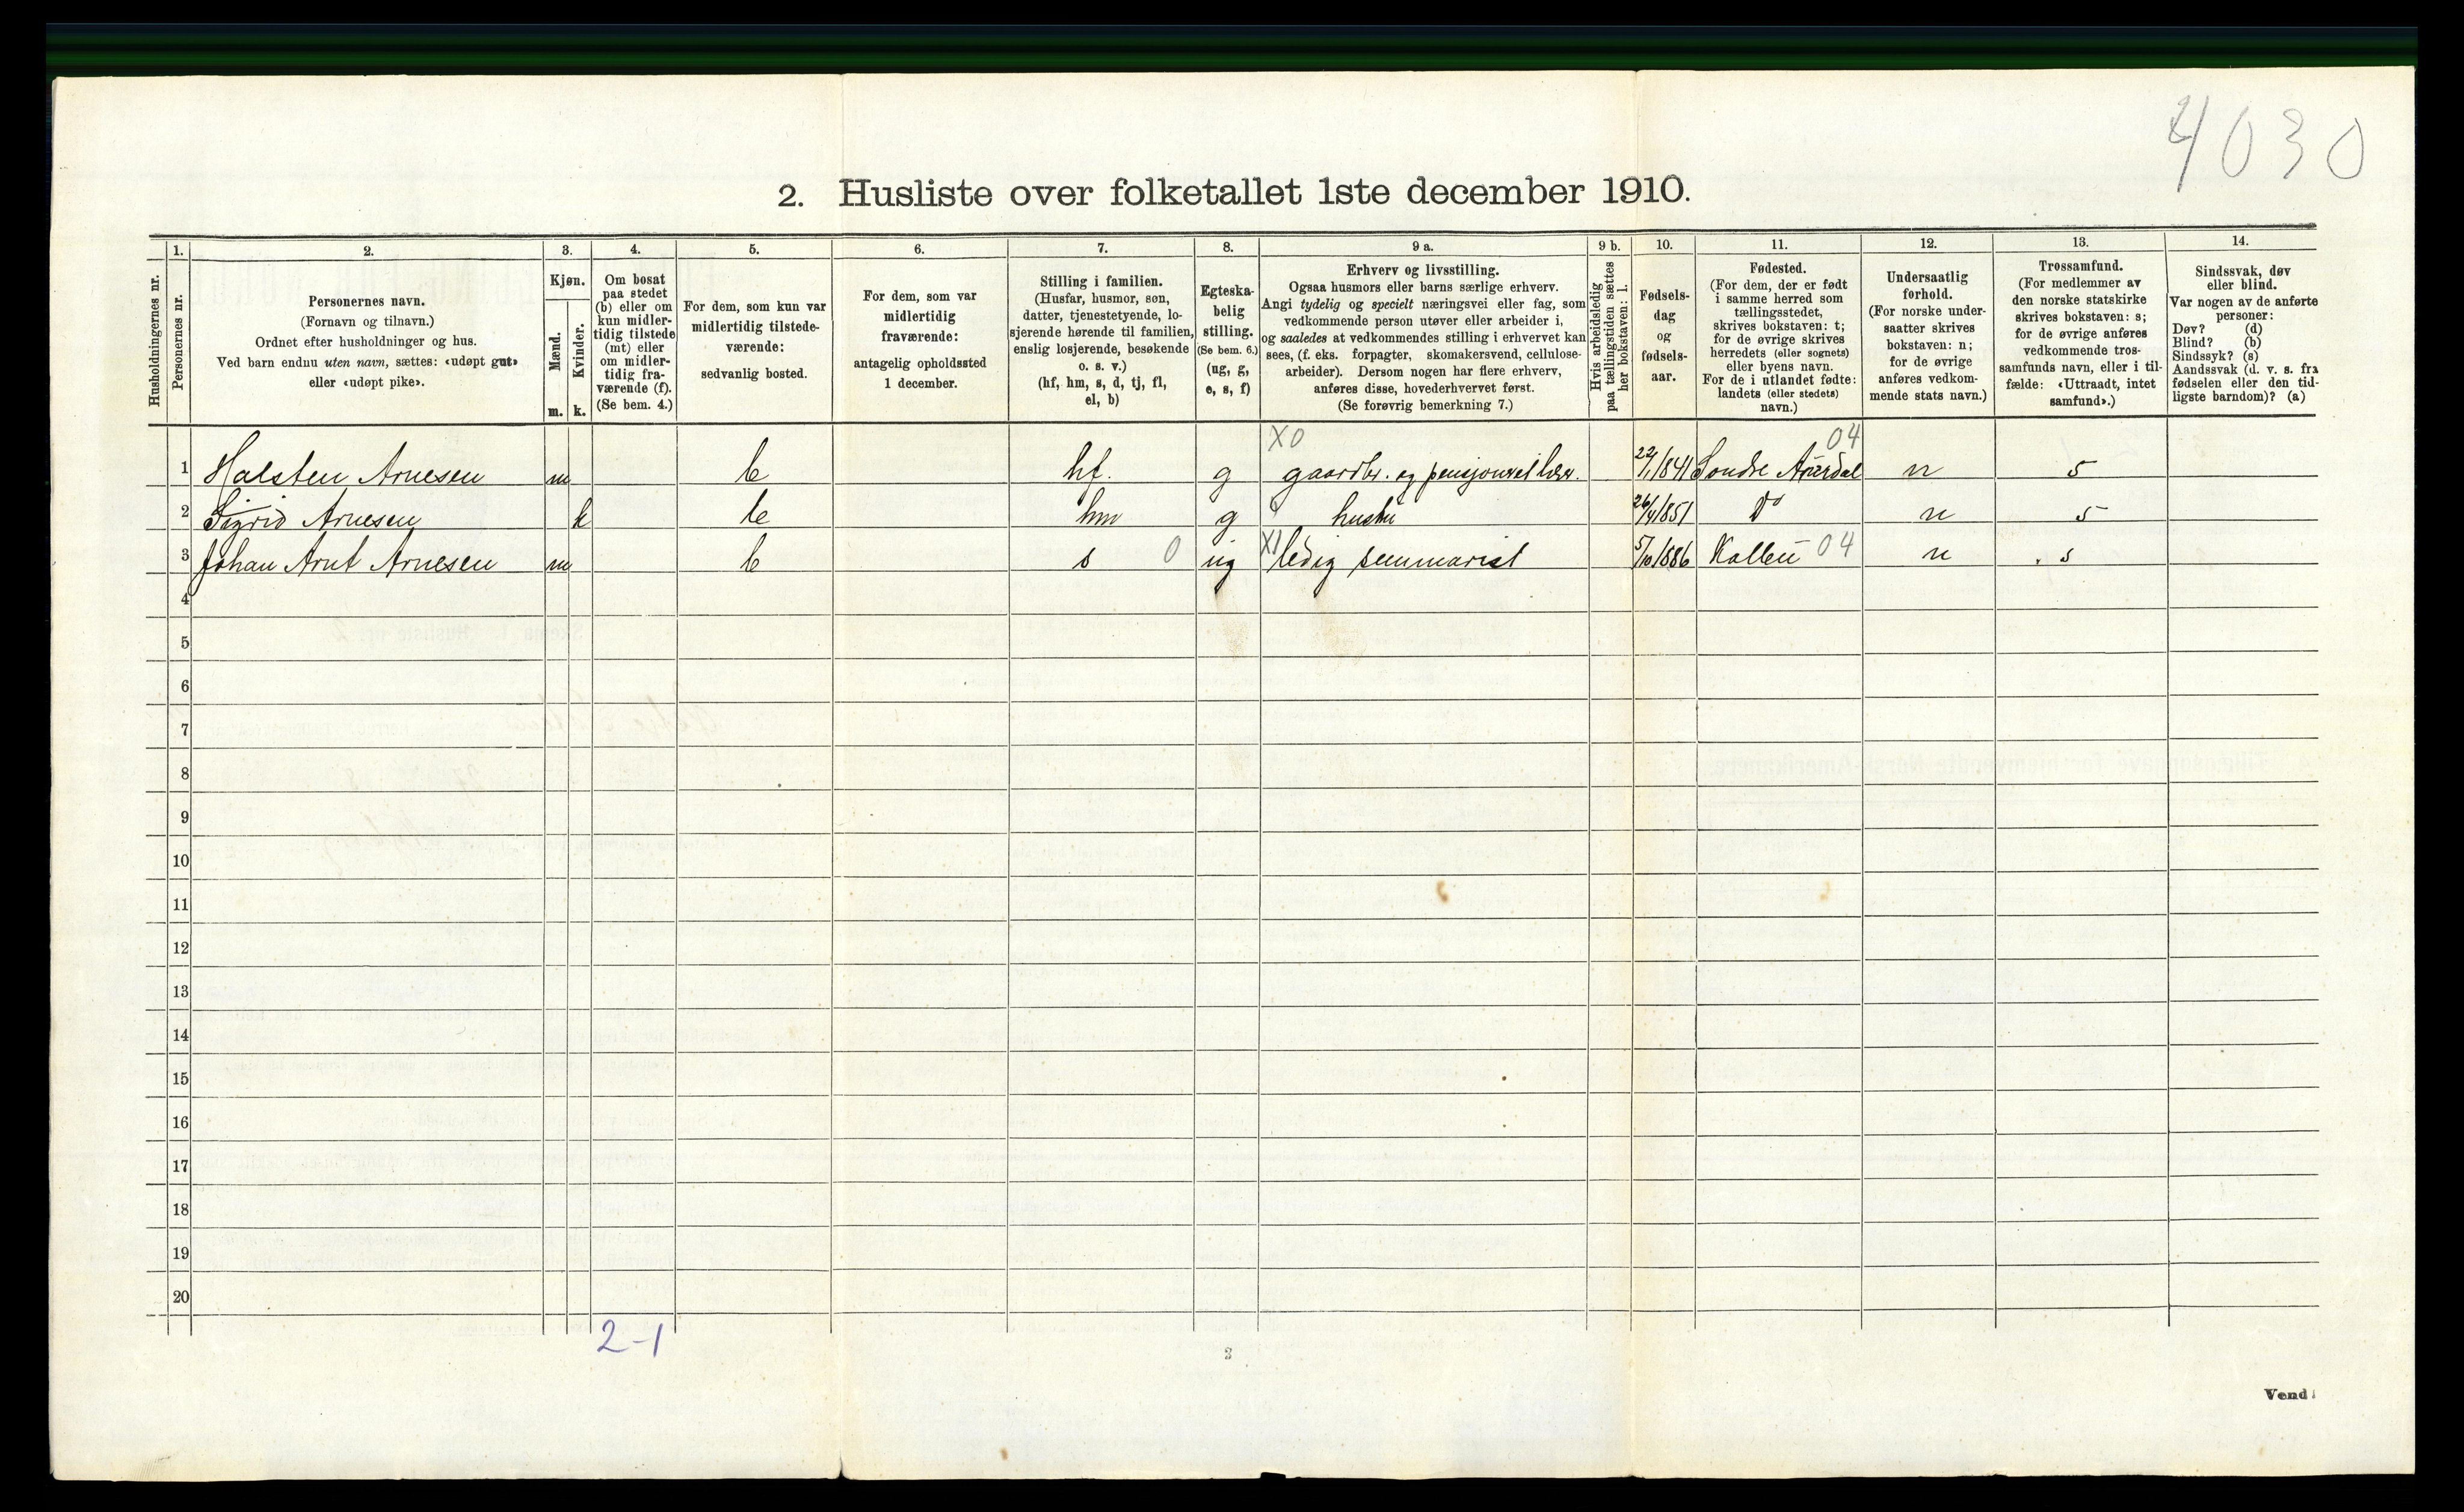 4030
2. Husliste over folketallet 1ste december 1910.
Husholdningernes nr.
1.
Personernes nr.
2.
Personernes navn.
(Fornavn og tilnavn.)
Ordnet efter husholdninger og hus.
Ved barn endnu uten navn, sættes: «udøpt gut»
eller «udøpt pike».
3.
Kjøn.
Mænd.
Kvinder.
m. k.
4.
Om bosat
paa stedet
(b) eller om
kun midler-
tidig tilstede
(mt) eller
om midler-
tidig fra-
værende (f).
(Se bem. 4.)
5.
For dem, som kun var
midlertidig tilstede-
værende:
sedvanlig bosted.
6.
For dem, som var
midlertidig
fraværende:
antagelig opholdssted
1 december.
7.
Stilling i familien.
(Husfar, husmor, søn,
datter, tjenestetyende, lo-
sjerende hørende til familien,
enslig losjerende, besøkende
o. s. v.)
(hf, hm, s, d, tj, fl,
el, b)
8.
Egteska-
belig
stilling.
(Se bem. 6.)
(ug, g,
e, s, f)
9 a.
Erhverv og livsstilling.
Ogsaa husmors eller barns særlige erhverv.
Angi tydelig og specielt næringsvei eller fag, som
vedkommende person utøver eller arbeider i,
og saaledes at vedkommendes stilling i erhvervet kan
sees, (f. eks. forpagter, skomakersvend, cellulose-
arbeider). Dersom nogen har flere erhverv,
anføres disse, hovederhvervet først.
(Se forøvrig bemerkning 7.)
9 b.
Hvis arbeidsledig
paa tællingstiden sættes
her bokstaven: l.
10.
Fødsels-
dag
og
fødsels-
aar.
11.
Fødested.
(For dem, der er født
i samme herred som
tællingsstedet,
skrives bokstaven: t;
for de øvrige skrives
herredets (eller sognets)
eller byens navn.
For de i utlandet fødte:
landets (eller stedets)
navn.)
12.
Undersaatlig
forhold.
(For norske under-
saatter skrives
bokstaven: n;
for de øvrige
anføres vedkom-
mende stats navn.)
13.
Trossamfund.
(For medlemmer av
den norske statskirke
skrives bokstaven: s;
for de øvrige anføres
vedkommende tros-
samfunds navn, eller i til-
fælde: «Uttraadt, intet
samfund».)
14.
Sindssvak, døv
eller blind.
Var nogen av de anførte
personer:
Døv? (d)
Blind? (b)
Sindssyk? (s)
Aandssvak (d. v. s. fra
fødselen eller den tid-
ligste barndom)? (a)
X0 04
1 Halsten Arnesen m b hf. g gaardbr. og 22/1 1841 Søndre Aurdal n s
2 Sigrid Arnesen k b hm g hustu 26/4 1851 Do n s
3 Johan Arnt Arnesen m b s 0 ug X1 ledig seminarist 5/10 1886 04 n s
4
5
6
7
8
9
10
11
12
13
14
15
16
17
18
19
20
2-1
Vend!